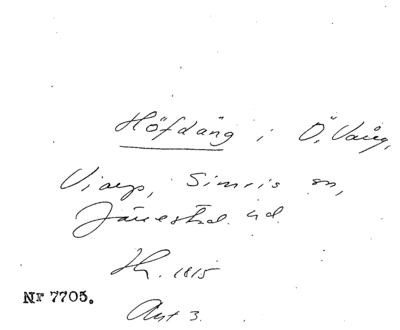 Höfdäng i Ö. Vång,
Viarp, Simris sn,
Järrestad hd.
Hr. 1815
Nr 7705.
Akt 3.